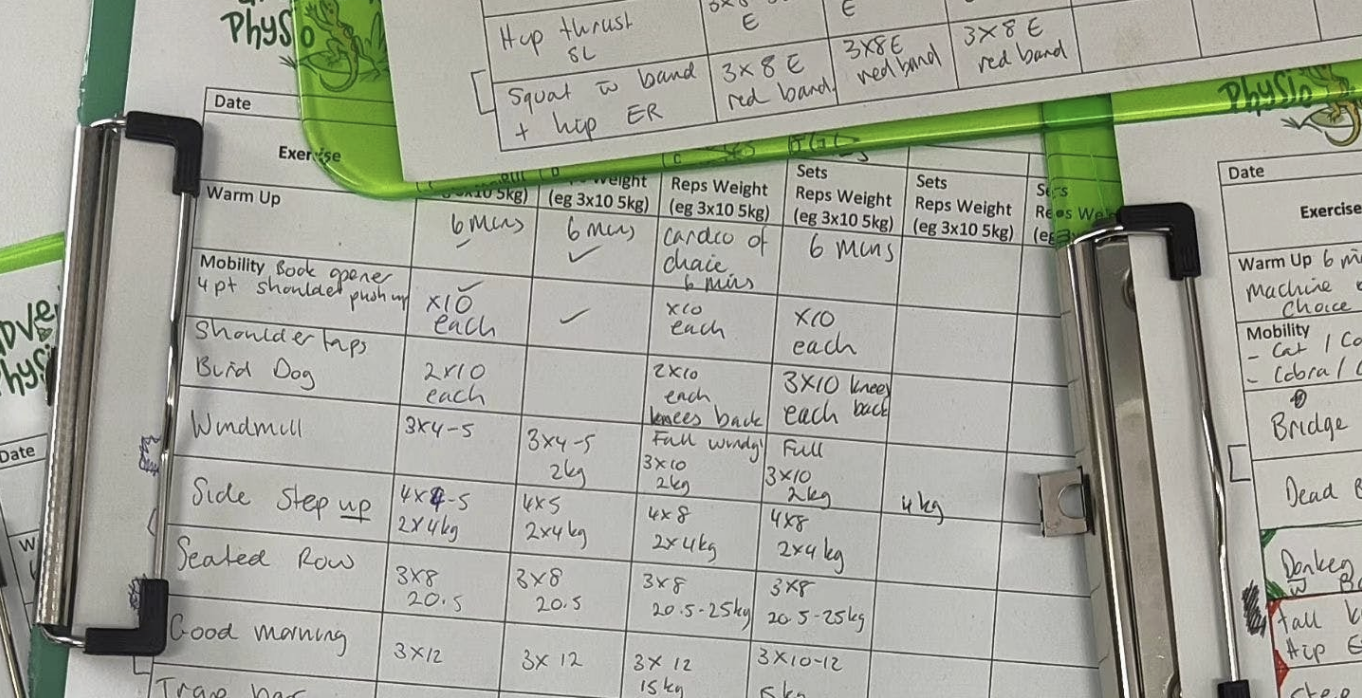 Physio
Hip thrust
SL
E
E
Squat w band
+ hip ER
3x8 E
red band
3x8E
red band
3x8 E
red band
Physio
Date
Exercise
Weight
(eg 3x10 5kg)
Reps Weight
(eg 3x10 5kg)
Sets
Reps Weight
(eg 3x10 5kg)
Sets
Reps Weight
(eg 3x10 5kg)
Warm Up
6 mins
6 mins
✓
cardio of
choice
6 mins
6 mins
Mobility Book opener
4 pt shoulder push up
x10
each
✓
x10
each
x10
each
Shoulder taps
Bird Dog
2x10
each
2x10
each
knees back
3x10 knees
each back
Windmill
3x4-5
3x4-5
2kg
Full windy
3x10
2kg
Full
3x10
2kg
4kg
Side Step up
4x4-5
2x4kg
4x5
2x4kg
4x8
2x4kg
4x8
2x4kg
Seated Row
3x8
20.5
3x8
20.5
3x8
20.5-25kg
3x8
20.5-25kg
Good morning
3x12
3x12
3x12
15kg
3x10-12
Trap bar
Date
Exercise
Warm Up 6
machine
choice
Mobility
- Cat /
- Cobra /
Bridge
Dead
Donkey
Tall
Hip
Date